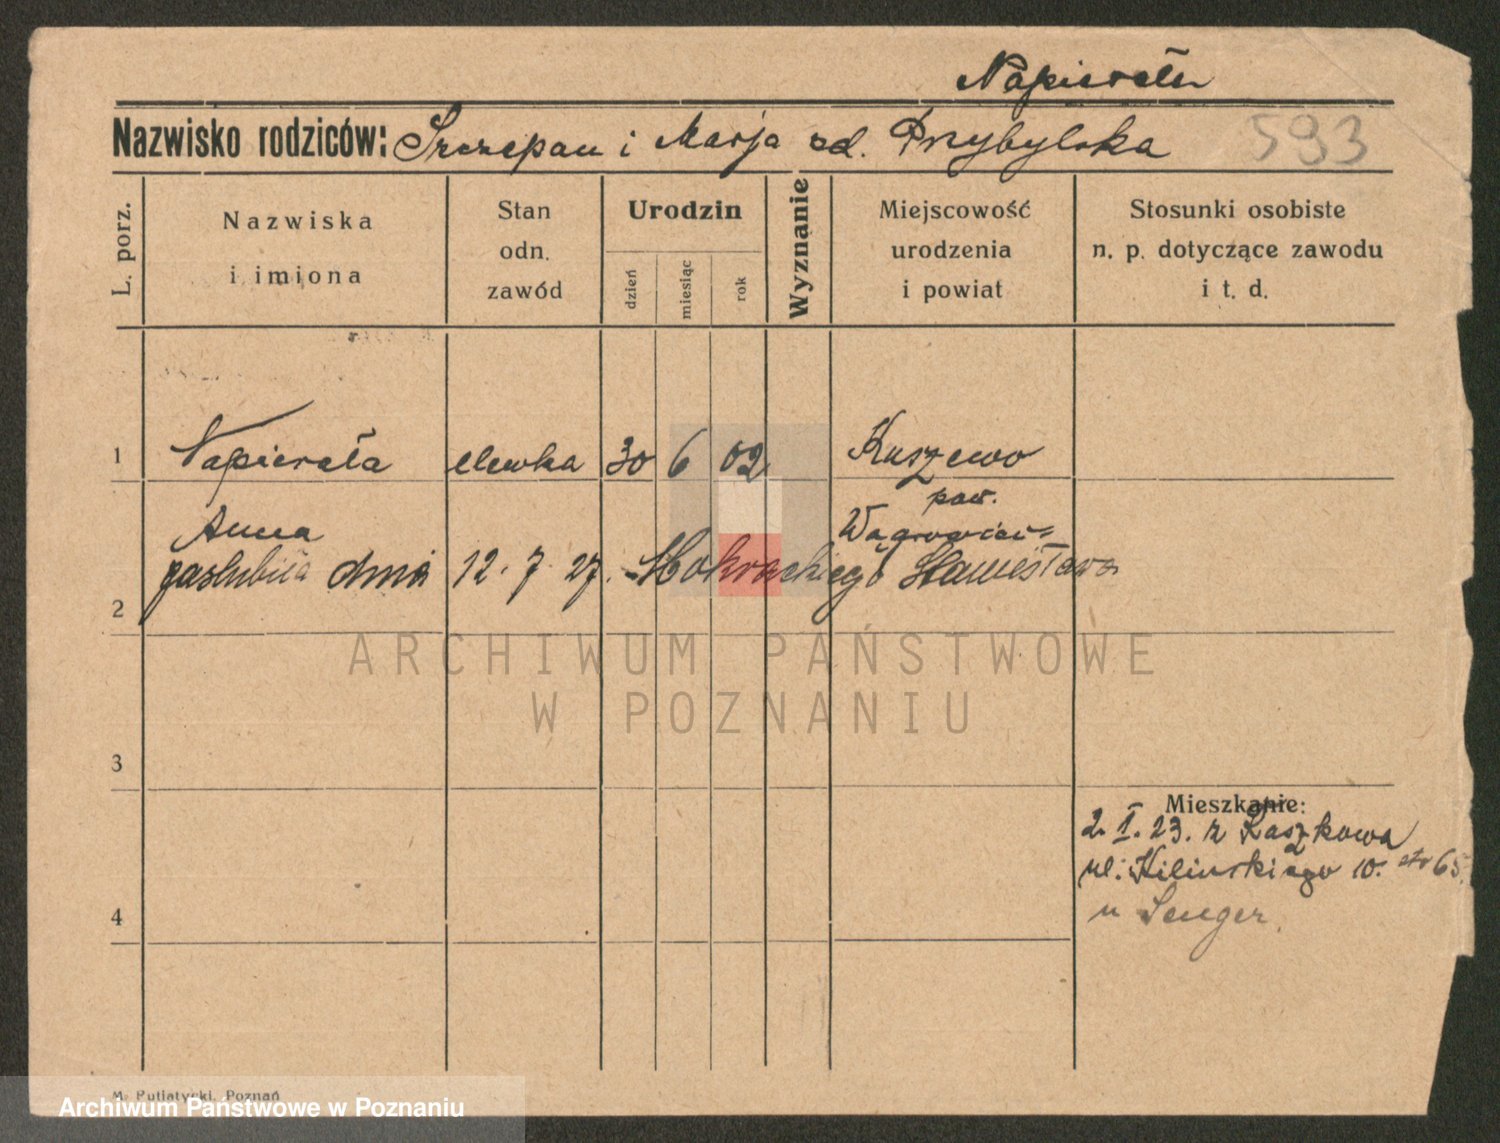 Napierała
Nazwisko rodziców: Szczepan i Marja zd. Przybylska 593
L. porz.
Nazwiska
i imiona
Stan
odn.
zawód
Urodzin
dzień
miesiąc
rok
Wyznanie
Miejscowość
urodzenia
i powiat
Stosunki osobiste
n. p. dotyczące zawodu
i t. d.
1 Napierała elewka 30 6 02 Kuszewo
pow.
Anna Wągrowiec
2 poślubiła dnia 12. 7. 27. Mokrackiego Stanisława
ARCHIWUM PAŃSTWOWE
W POZNANIU
3
Mieszkanie:
2. I. 23. z Raszkowa
ul. Kilińskiego 10. str 65.
4 u Senger.
M. Putiatycki, Poznań
Archiwum Państwowe w Poznaniu